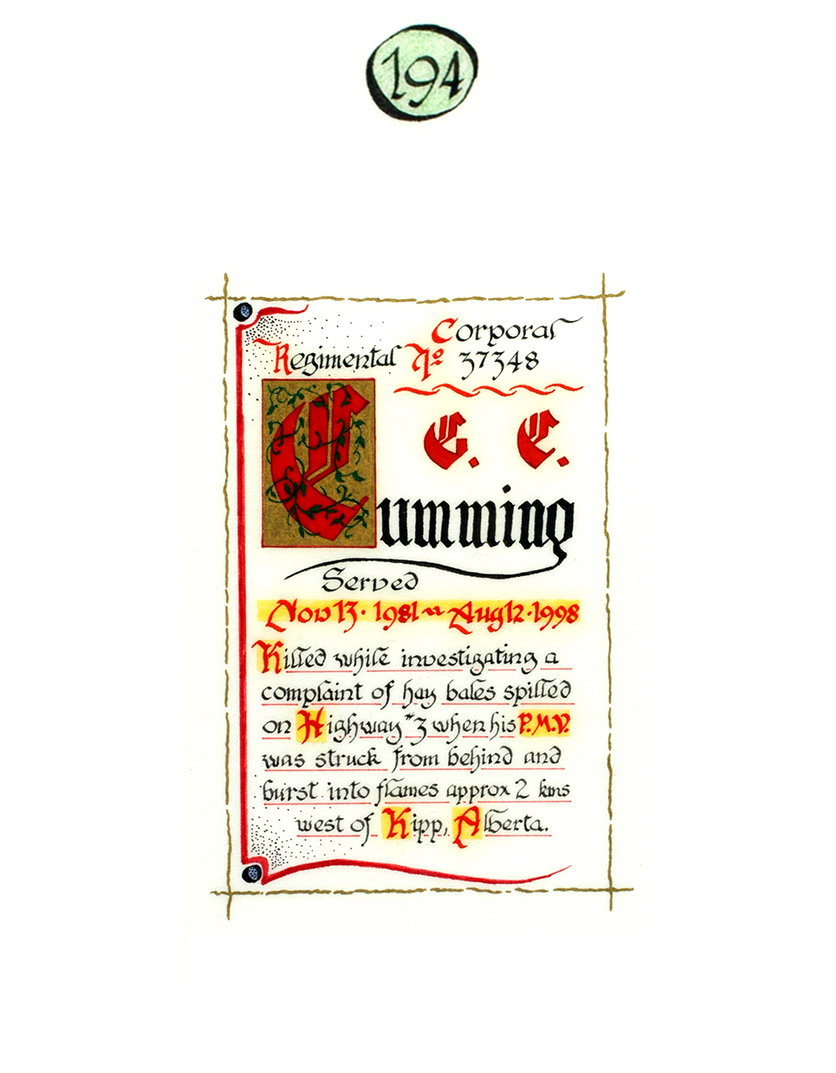 194
Corporal
Regimental No 37348
G. C.
Cumming
Served
Nov 13. 1981 ~ Aug 12. 1998
Killed while investigating a
complaint of hay bales spilled
on Highway #3 when his P.M.V.
was struck from behind and
burst into flames approx 2 kms
west of Kipp, Alberta.